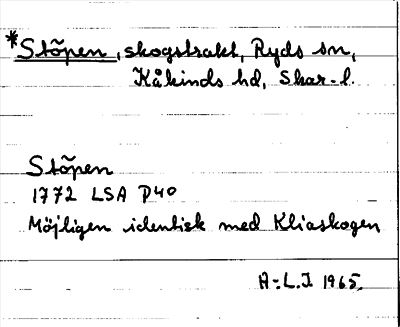 *Stöpen, skogstrakt, Ryds sn,
Kåkinds hd, Skar-l.
Stöpen
1772 LSA P40
Möjligen identisk med Kliaskogen
A-L.J 1965.